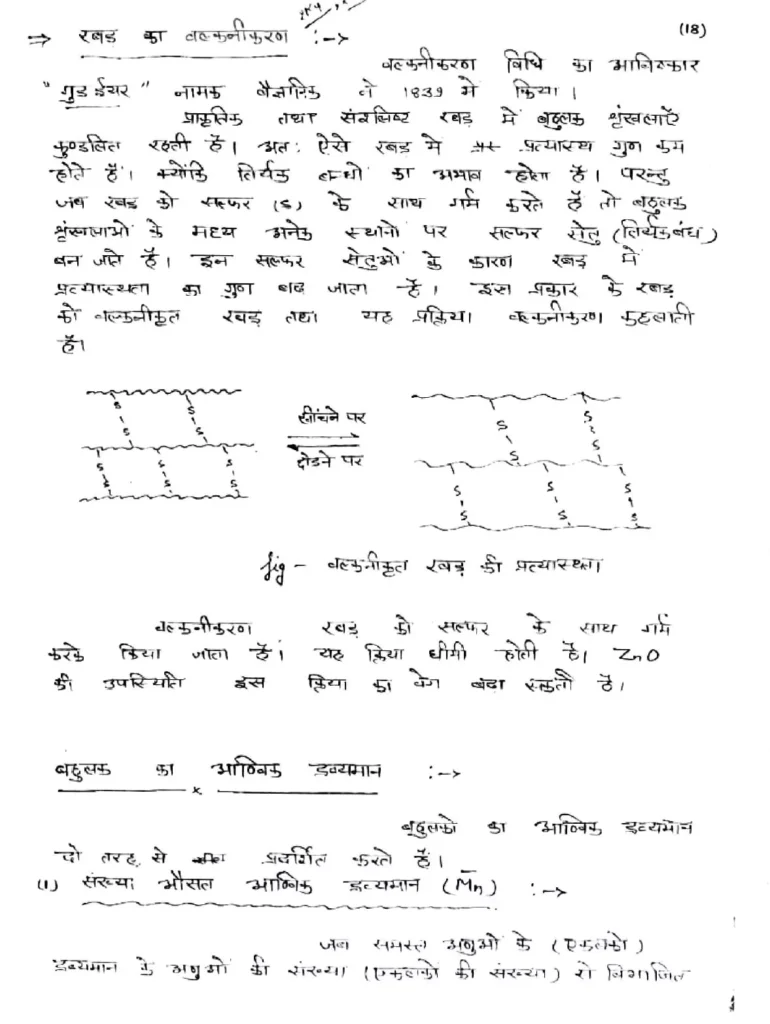 (18)
⇒ रबड़ का वल्कनीकरण :->
वल्कनीकरण विधि का आविष्कार
"गुड ईयर" नामक वैज्ञानिक ने 1839 में किया।
प्राकृतिक तथा संश्लिष्ट रबड़ में बहुलक श्रृंखलाएँ
कुण्डलित रहती हैं। अतः ऐसे रबड़ में प्रत्यास्थ गुण कम
होते हैं। क्योंकि तिर्यक बन्धों का अभाव होता है। परन्तु
जब रबड़ को सल्फर (S) के साथ गर्म करते हैं तो बहुलक
श्रृंखलाओं के मध्य अनेक स्थानों पर सल्फर सेतु (तिर्यकबंध)
बन जाते हैं। इन सल्फर सेतुओं के कारण रबड़ में
प्रत्यास्थता का गुण बढ़ जाता है। इस प्रकार के रबड़
को वल्कनीकृत रबड़ तथा यह प्रक्रिया वल्कनीकरण कहलाती
हैं।
S S S S
S S S S
खींचने पर
छोडने पर
S S S S S
S S S S S
fig - वल्कनीकृत रबड़ की प्रत्यास्थता
वल्कनीकरण रबड़ को सल्फर के साथ गर्म
करके किया जाता हैं। यह क्रिया धीमी होती हैं। ZnO
की उपस्थिति इस क्रिया का वेग बढ़ा सकती है।
बहुलक का आण्विक द्रव्यमान :->
बहुलको का आण्विक द्रव्यमान
दो तरह से प्रदर्शित करते हैं।
(1) संख्या औसत आण्विक द्रव्यमान (M̄n) :->
जब समस्त अणुओं के (एकलको)
द्रव्यमान के अणुओं की संख्या (एकलकों की संख्या) से विभाजित